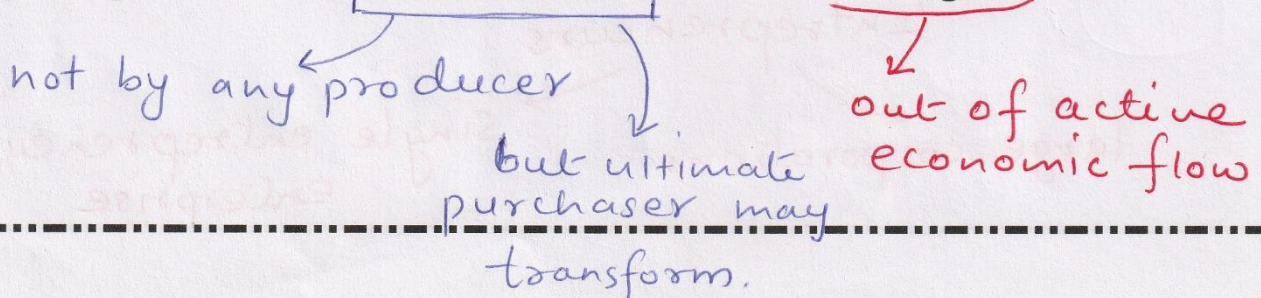 not by any producer
but ultimate
purchaser may
transform.
out of active
economic flow